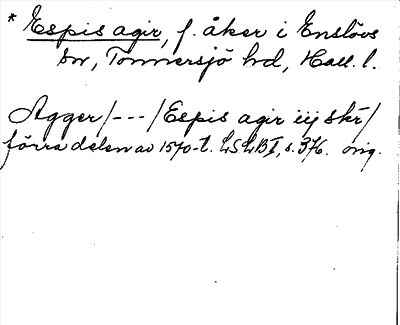 * Espis agir, f. åker i Enslövs
sn, Tönnersjö hd, Hall. l.
Agger /---/ Espis agir iij skr /
förra delen av 1570-t. LSLB I, s. 376. orig.